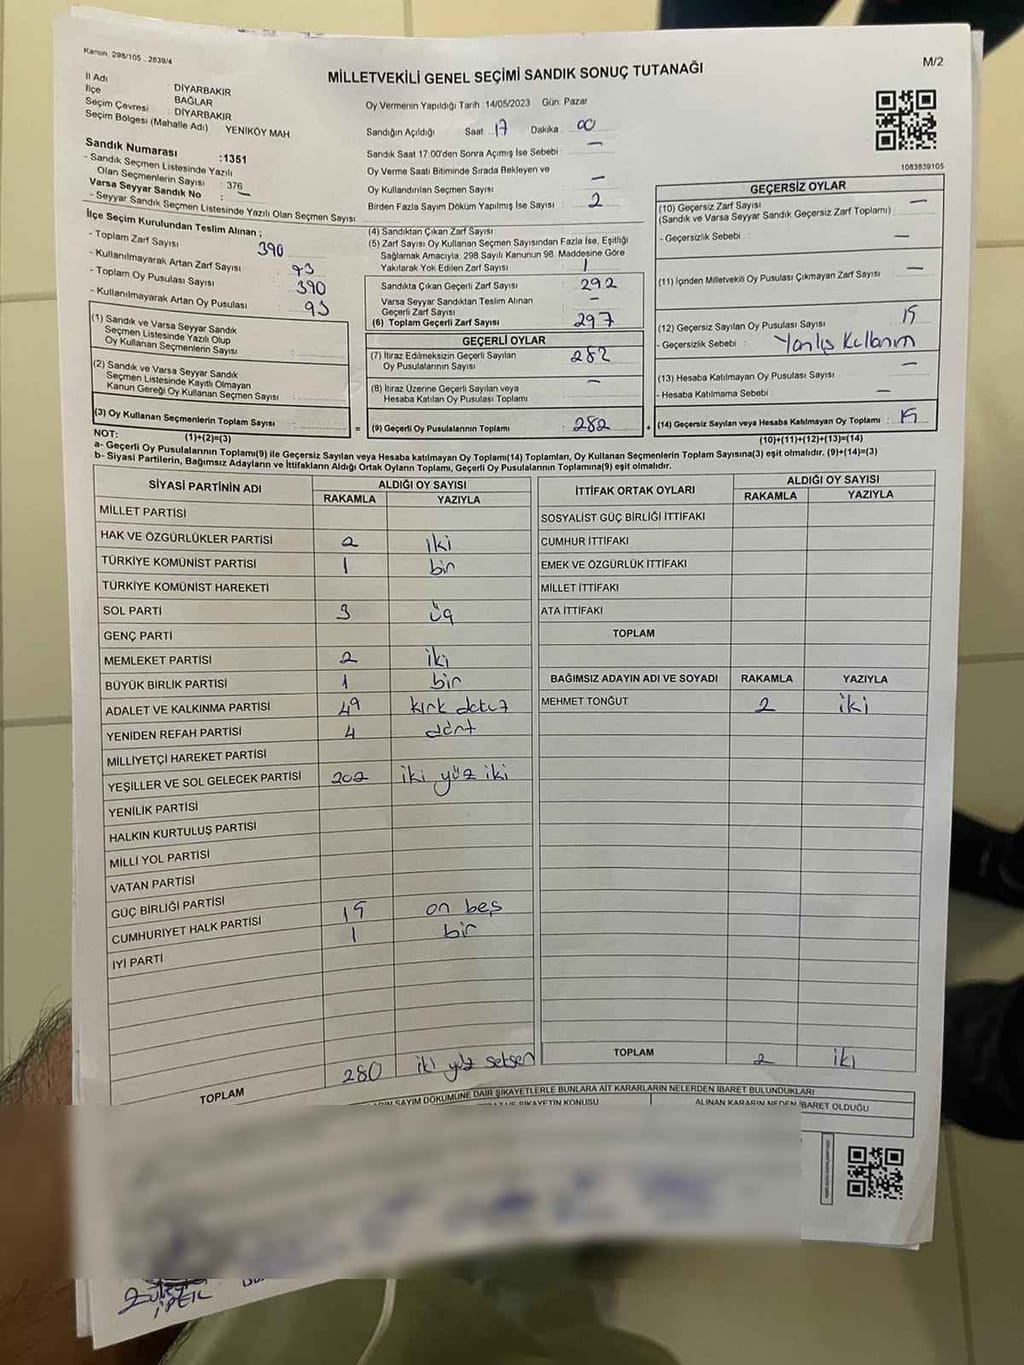 Kanun: 298/105 . 2839/4
MİLLETVEKİLİ GENEL SEÇİMİ SANDIK SONUÇ TUTANAĞI
M/2
İl Adı : DİYARBAKIR
İlçe : BAĞLAR
Seçim Çevresi : DİYARBAKIR
Seçim Bölgesi (Mahalle Adı) : YENİKÖY MAH.
Sandık Numarası :1351
- Sandık Seçmen Listesinde Yazılı
Olan Seçmenlerin Sayısı : 376
Varsa Seyyar Sandık No : —
- Seyyar Sandık Seçmen Listesinde Yazılı Olan Seçmen Sayısı
Oy Vermenin Yapıldığı Tarih :14/05/2023 Gün: Pazar
Sandığın Açıldığı Saat : 17 Dakika : 00
Sandık Saat 17:00'den Sonra Açımış İse Sebebi : —
Oy Verme Saati Bitiminde Sırada Bekleyen ve
Oy Kullandırılan Seçmen Sayısı : —
Birden Fazla Sayım Döküm Yapılmış İse Sayısı : 2
1083839105
İlçe Seçim Kurulundan Teslim Alınan ;
- Toplam Zarf Sayısı : 390
- Kullanılmayarak Artan Zarf Sayısı : 93
- Toplam Oy Pusulası Sayısı : 390
- Kullanılmayarak Artan Oy Pusulası : 93
(1) Sandık ve Varsa Seyyar Sandık
Seçmen Listesinde Yazılı Olup
Oy Kullanan Seçmenlerin Sayısı :
(2) Sandık ve Varsa Seyyar Sandık
Seçmen Listesinde Kayıtlı Olmayan
Kanun Gereği Oy Kullanan Seçmen Sayısı :
(3) Oy Kullanan Seçmenlerin Toplam Sayısı :
(1)+(2)=(3)
(4) Sandıktan Çıkan Zarf Sayısı :
(5) Zarf Sayısı Oy Kullanan Seçmen Sayısından Fazla İse, Eşitliği
Sağlamak Amacıyla, 298 Sayılı Kanunun 98. Maddesine Göre
Yakılarak Yok Edilen Zarf Sayısı : 1
Sandıkta Çıkan Geçerli Zarf Sayısı : 292
Varsa Seyyar Sandıktan Teslim Alınan
Geçerli Zarf Sayısı : —
(6) Toplam Geçerli Zarf Sayısı : 297
GEÇERLİ OYLAR
(7) İtiraz Edilmeksizin Geçerli Sayılan
Oy Pusulalarının Sayısı : 282
(8) İtiraz Üzerine Geçerli Sayılan veya
Hesaba Katılan Oy Pusulası Toplamı : —
= (9) Geçerli Oy Pusulalarının Toplamı : 282
GEÇERSİZ OYLAR
(10) Geçersiz Zarf Sayısı : —
(Sandık ve Varsa Seyyar Sandık Geçersiz Zarf Toplamı)
- Geçersizlik Sebebi : —
(11) İçinden Milletvekili Oy Pusulası Çıkmayan Zarf Sayısı : —
(12) Geçersiz Sayılan Oy Pusulası Sayısı : 15
- Geçersizlik Sebebi : Yanlış Kullanım
(13) Hesaba Katılmayan Oy Pusulası Sayısı : —
- Hesaba Katılmama Sebebi : —
+ (14) Geçersiz Sayılan veya Hesaba Katılmayan Oy Toplamı : 15
(10)+(11)+(12)+(13)=(14)
NOT:
a- Geçerli Oy Pusulalarının Toplamı(9) ile Geçersiz Sayılan veya Hesaba katılmayan Oy Toplamı(14) Toplamları, Oy Kullanan Seçmenlerin Toplam Sayısına(3) eşit olmalıdır. (9)+(14)=(3)
b- Siyasi Partilerin, Bağımsız Adayların ve İttifakların Aldığı Ortak Oyların Toplamı, Geçerli Oy Pusulalarının Toplamına(9) eşit olmalıdır.
SİYASİ PARTİNİN ADI ALDIĞI OY SAYISI
RAKAMLA YAZIYLA
MİLLET PARTİSİ
HAK VE ÖZGÜRLÜKLER PARTİSİ 2 iki
TÜRKİYE KOMÜNİST PARTİSİ 1 bir
TÜRKİYE KOMÜNİST HAREKETİ
SOL PARTİ 3 üç
GENÇ PARTİ
MEMLEKET PARTİSİ 2 iki
BÜYÜK BİRLİK PARTİSİ 1 bir
ADALET VE KALKINMA PARTİSİ 49 kırk dokuz
YENİDEN REFAH PARTİSİ 4 dört
MİLLİYETÇİ HAREKET PARTİSİ
YEŞİLLER VE SOL GELECEK PARTİSİ 202 iki yüz iki
YENİLİK PARTİSİ
HALKIN KURTULUŞ PARTİSİ
MİLLİ YOL PARTİSİ
VATAN PARTİSİ
GÜÇ BİRLİĞİ PARTİSİ
CUMHURİYET HALK PARTİSİ 15 on beş
İYİ PARTİ 1 bir
TOPLAM 280 iki yüz seksen
İTTİFAK ORTAK OYLARI ALDIĞI OY SAYISI
RAKAMLA YAZIYLA
SOSYALİST GÜÇ BİRLİĞİ İTTİFAKI
CUMHUR İTTİFAKI
EMEK VE ÖZGÜRLÜK İTTİFAKI
MİLLET İTTİFAKI
ATA İTTİFAKI
TOPLAM
BAĞIMSIZ ADAYIN ADI VE SOYADI RAKAMLA YAZIYLA
MEHMET TONĞUT 2 iki
TOPLAM 2 iki
SAYIM DÖKÜMÜNE DAİR ŞİKAYETLERLE BUNLARA AİT KARARLARIN NELERDEN İBARET BULUNDUKLARI
ŞİKAYETİN KONUSU ALINAN KARARIN NEDEN İBARET OLDUĞU
İPEK